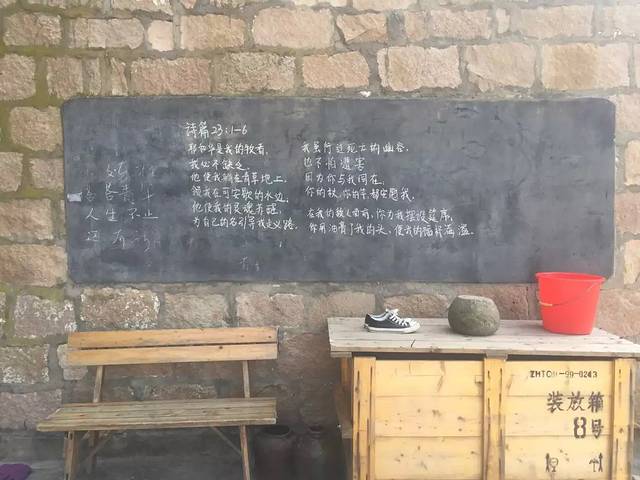 诗篇23:1-6
耶和华是我的牧者,
我必不缺乏。
他使我躺在青草地上,
领我在可安歇的水边。
他使我的灵魂苏醒,
为自己的名引导我走义路。
我虽行过死
的幽谷,
也不怕遭害
因为你与我同在,
你的杖,你的竿,都安慰我。
在我的敌人面前,你为我摆设筵席,
你用油膏了我的头,使我的福杯满溢。
人生不止
还有
ZHTC
-99-0243
装放箱
8号